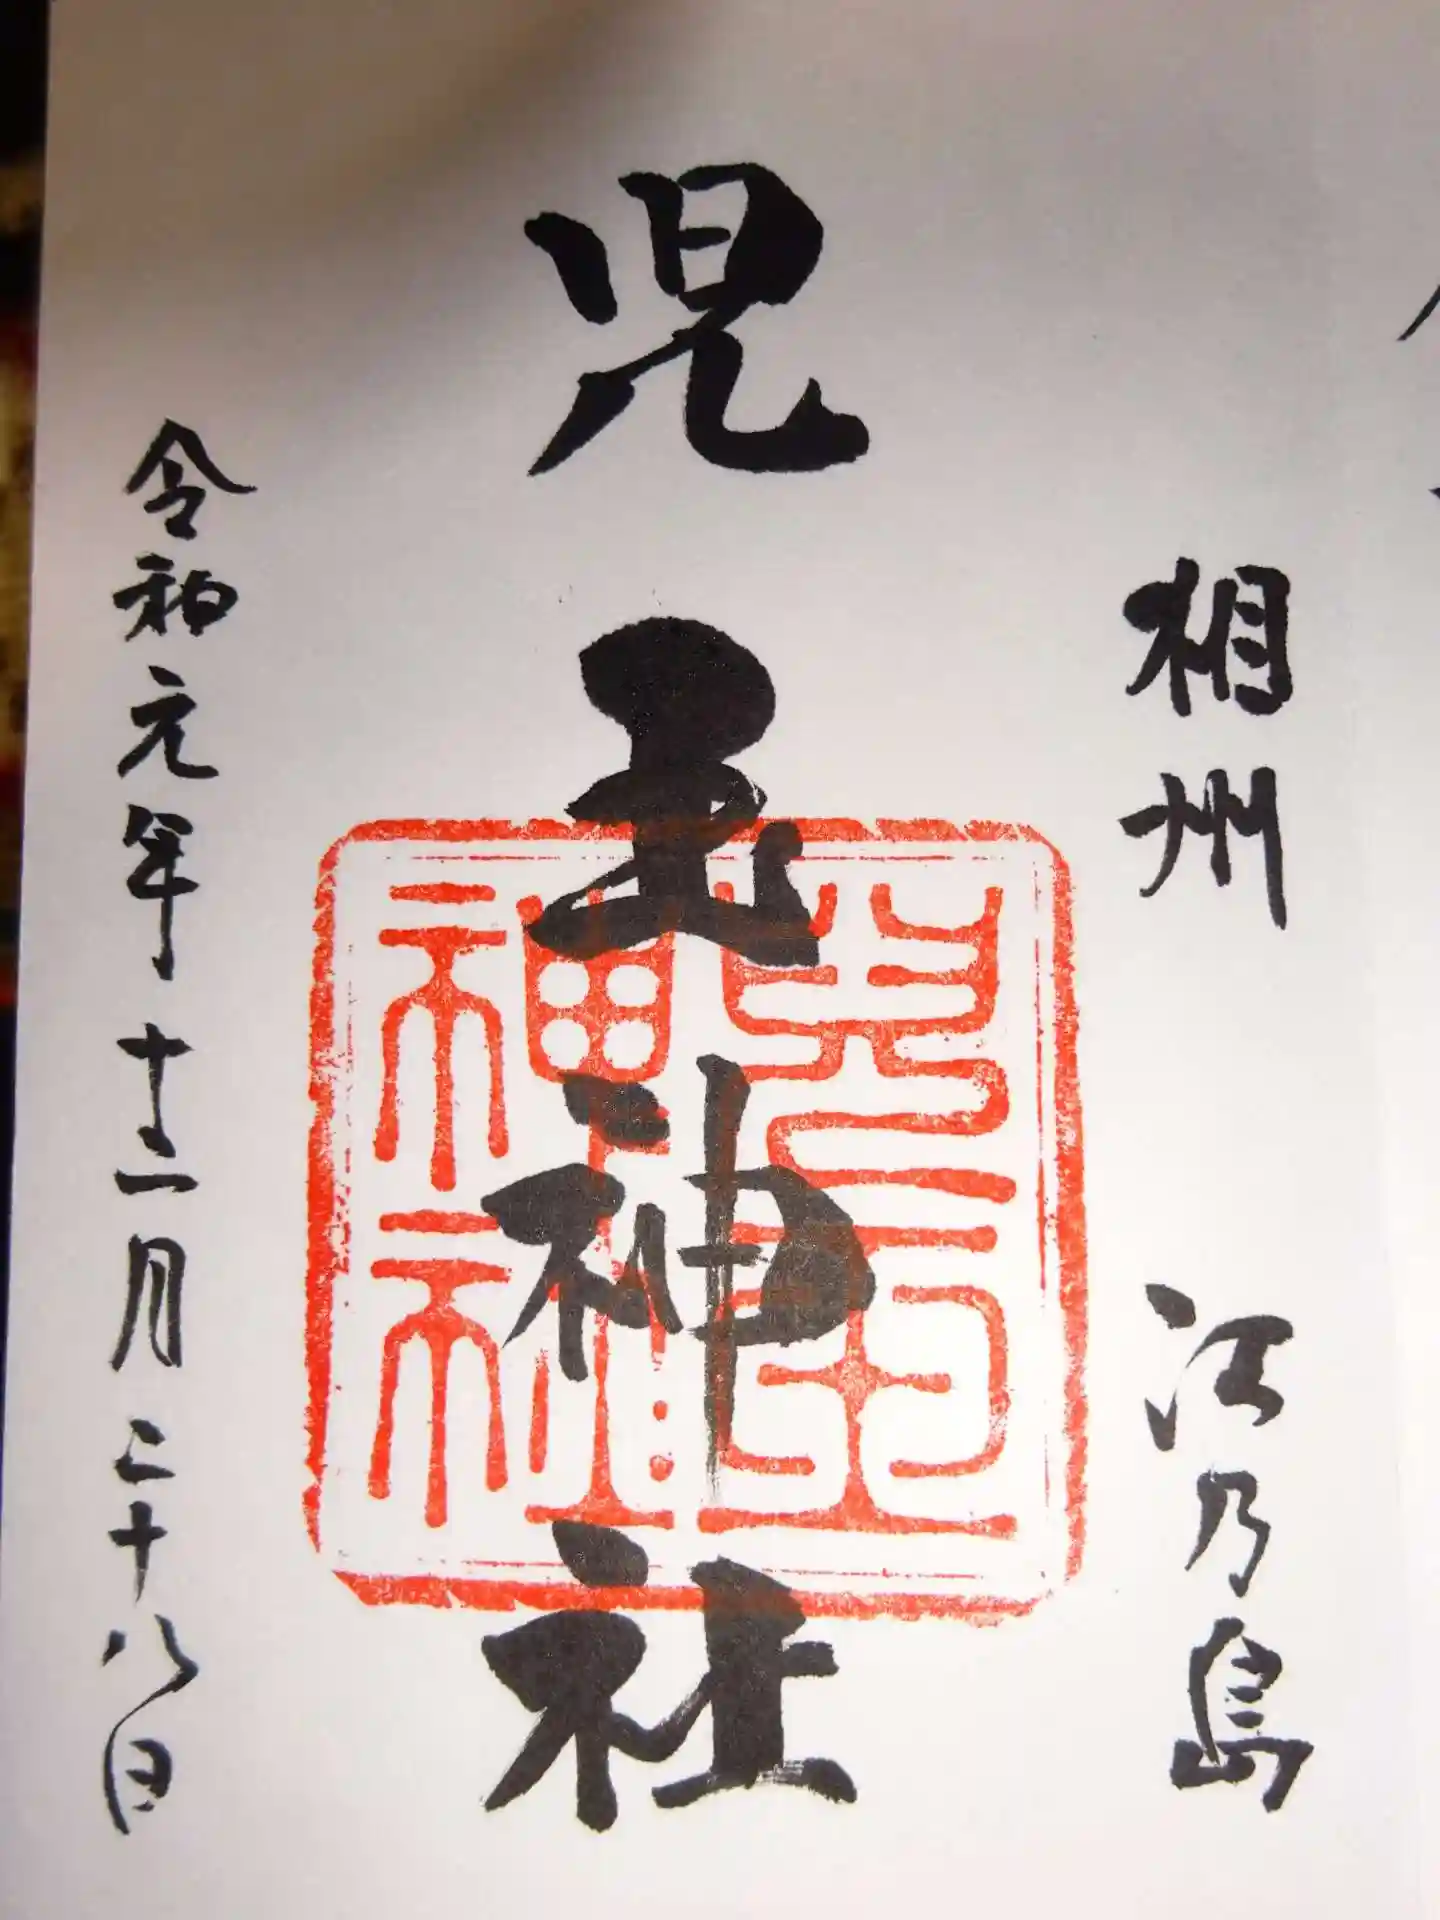 相州 江乃島
児玉神社
令和元年十二月二十八日